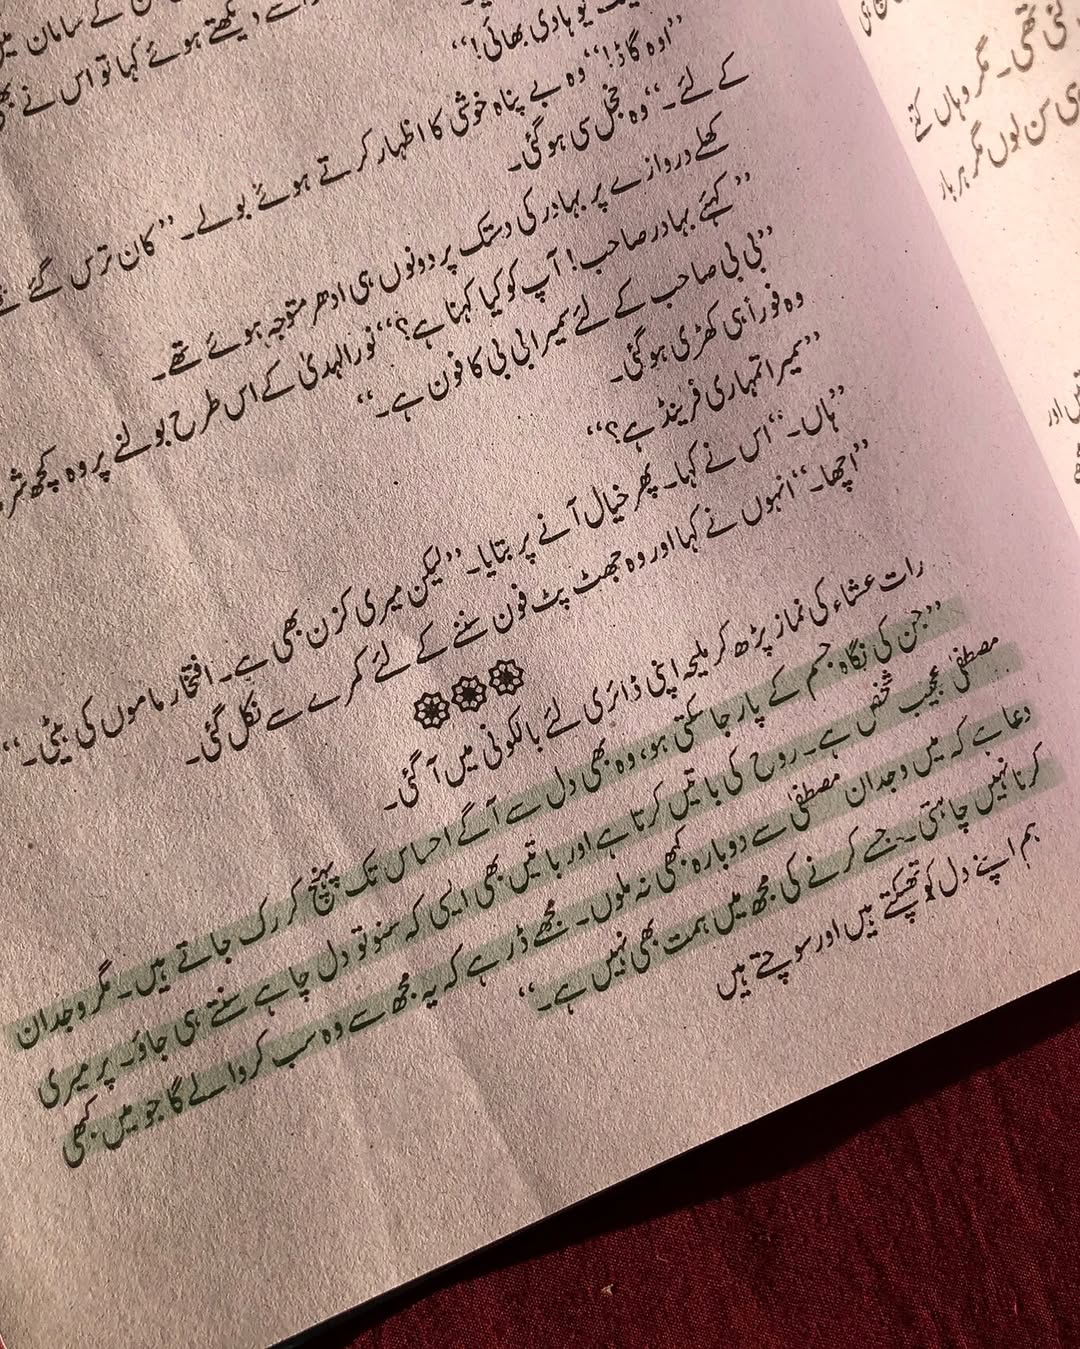 سے دیکھتے ہوئے کہا تو اس نے بھی
یو ہادی بھائی!‘‘
’’اوہ گاڈ!‘‘ وہ بے پناہ خوشی کا اظہار کرتے ہوئے بولے۔ ’’کان ترس گئے تھے
کے لئے۔‘‘ وہ خجل سی ہو گئی۔
کھلے دروازے پر بہادر کی دستک پر دونوں ہی ادھر متوجہ ہوئے تھے۔
’’کہئے بہادر صاحب! آپ کو کیا کہنا ہے؟‘‘ نورالہدیٰ کے اس طرح بولنے پر وہ کچھ
’’بی بی صاحب کے لئے سمیرا بی بی کا فون ہے۔‘‘
وہ فوراً ہی کھڑی ہو گئی۔
’’سمیرا تمہاری فرینڈ ہے؟‘‘
’’ہاں۔‘‘ اس نے کہا۔ پھر خیال آنے پر بتایا۔ ’’لیکن میری کزن بھی ہے۔ افتخار ماموں کی بیٹی۔‘‘
’’اچھا۔‘‘ انہوں نے کہا اور وہ جھٹ پٹ فون سننے کے لئے کمرے سے نکل گئی۔
رات عشاء کی نماز پڑھ کر ملیحہ اپنی ڈائری لئے بالکونی میں آ گئی۔
’’جن کی نگاہ جسم کے پار جا سکتی ہو، وہ بھی دل سے آگے احساس تک پہنچ کر رک جاتے ہیں۔ مگر وجدان
مصطفیٰ عجیب شخص ہے۔ روح کی باتیں کرتا ہے اور باتیں بھی ایسی کہ سنو تو دل چاہے سنتے ہی جاؤ۔ پر میری
دعا ہے کہ میں وجدان مصطفیٰ سے دوبارہ کبھی نہ ملوں۔ مجھے ڈر ہے کہ یہ مجھ سے وہ سب کروا لے گا جو میں کبھی
کرنا نہیں چاہتی۔ جسے کرنے کی مجھ میں ہمت بھی نہیں ہے۔‘‘
ہم اپنے دل کو تھپکتے ہیں اور سوچتے ہیں
گئی تھی۔ مگر وہاں کتنے
سن لوں مگر ہر بار